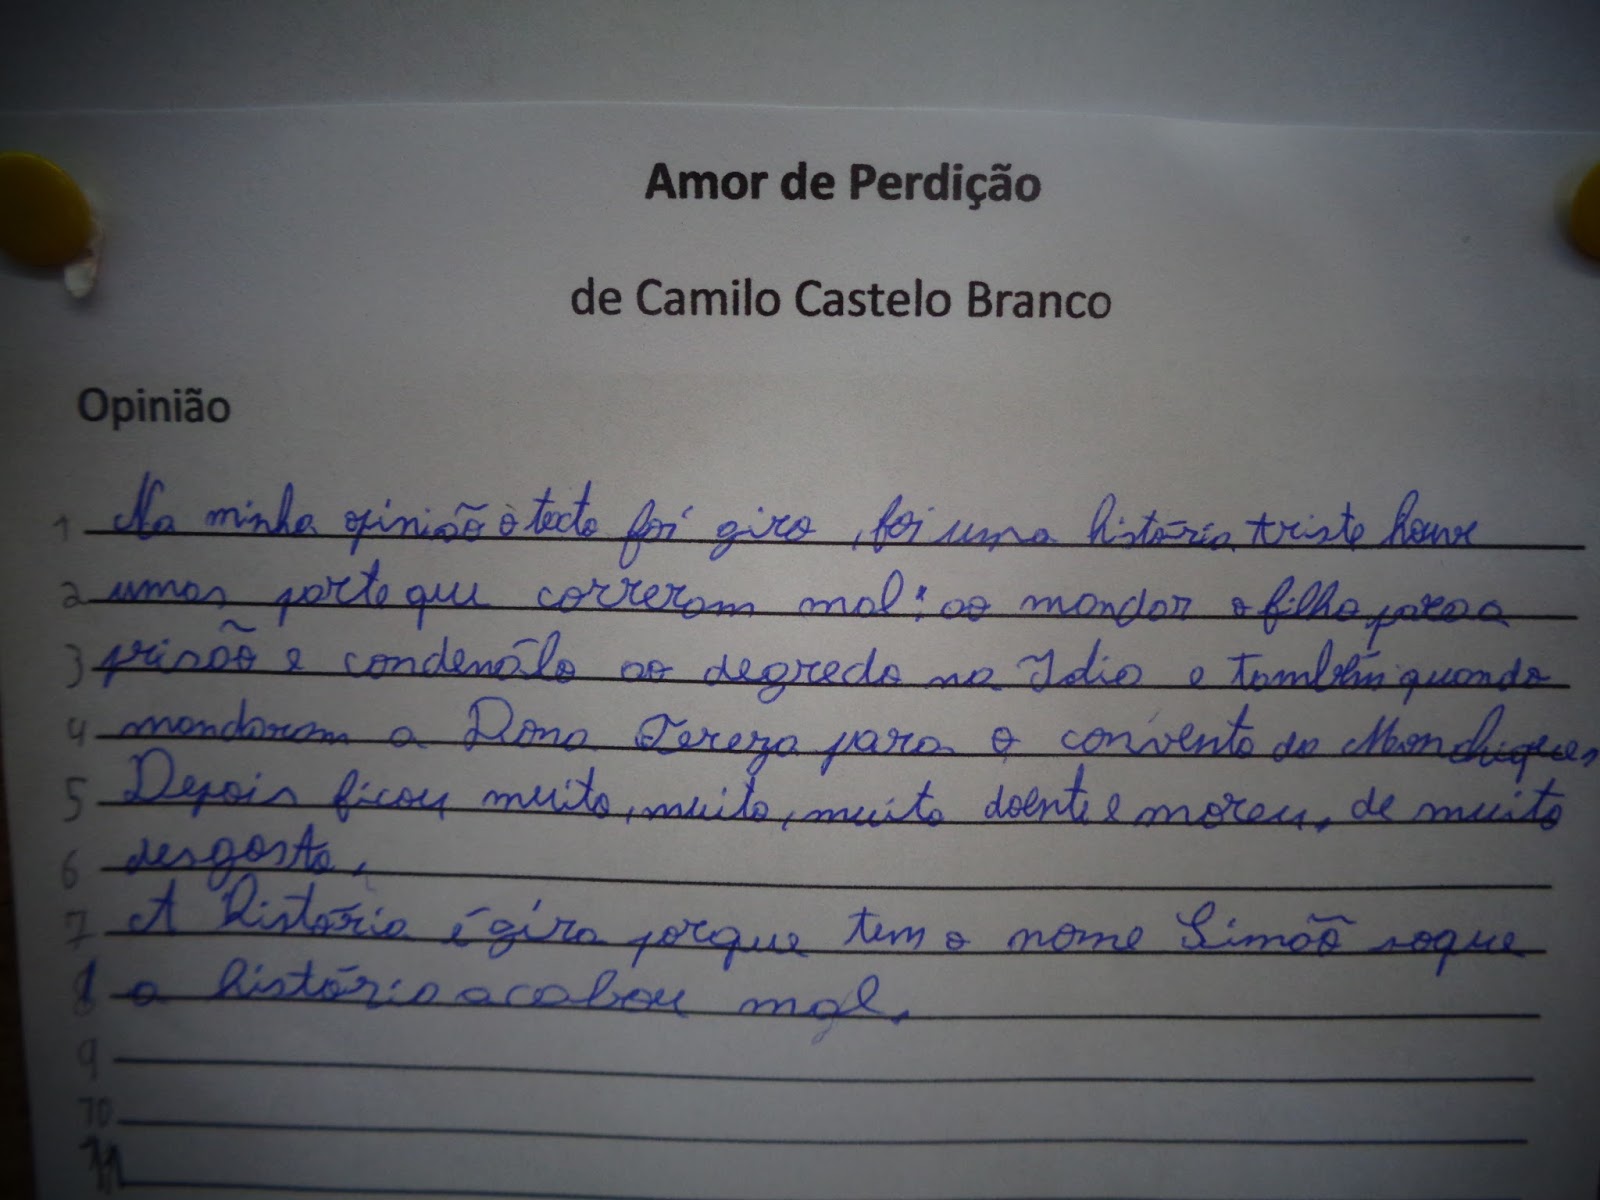 Amor de Perdição
de Camilo Castelo Branco
Opinião
1 Na minha opinião o texto foi giro, foi uma história triste houve
2 umas parte que correram mal: ao mandar o filho para a
3 prisão e condenálo ao degredo na Idia e também quando
4 mandaram a Dona Tereza para o convento de Monchiques
5 Depois ficou muito, muito, muito doente e moreu, de muito
6 desgosto.
7 A história é gira porque tem o nome Simão soque
8 a história acabou mal.
9
10
11